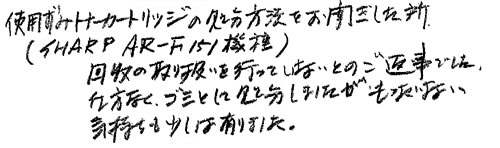 使用済みトナーカートリッジの処分方法をお聞きした所
(SHARP AR-F151機種)
回収の取り扱いを行ってしないとのご返事でした。
仕方なく、ゴミとして処分しましたがもったいない
気持ちも少しは有りました。